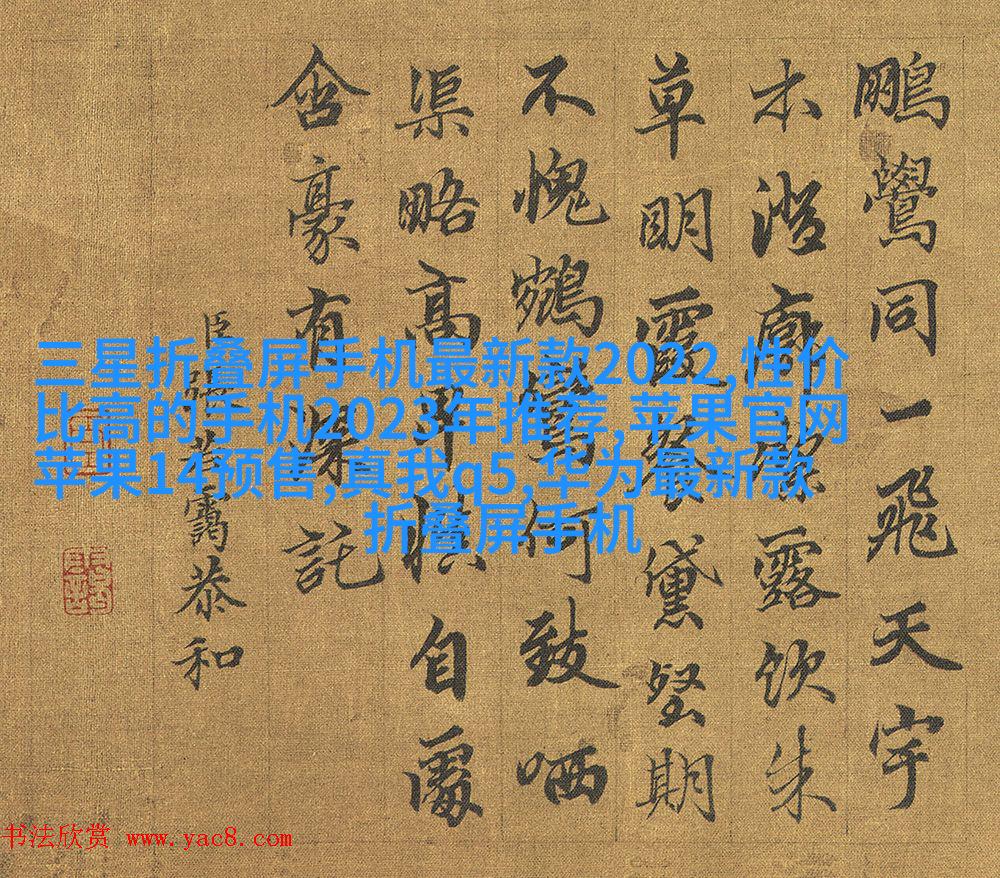 鵬鷽同一飛天宇
本澄廓餘露飲朱
草明霞餐黛壑期
不愧鶴何致哂
渠略高卑慎自
含豪有深託
臣張若靄恭和
三星折叠屏手机最新款2022,性价
比高的手机2023年推荐,苹果官网
苹果14预售,真我q5,华为最新款
折叠屏手机
书法欣赏 www.yac8.com